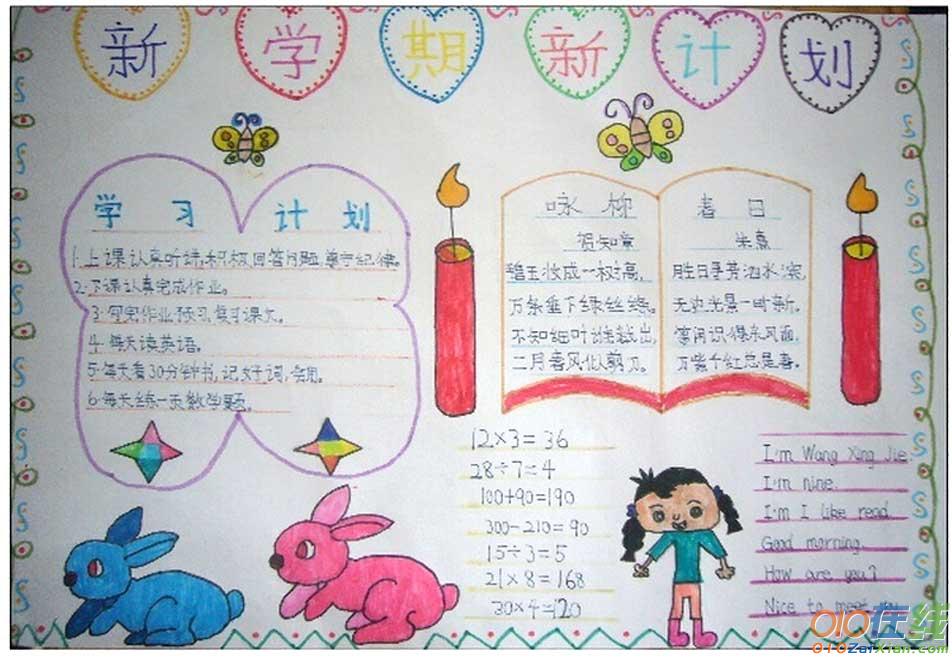 新学期新计划
学习 计划
1.上课认真听讲,积极回答问题,遵守纪律。
2.下课认真完成作业。
3.写完作业预习复习课文。
4.每天读英语。
5.每天看30分钟书,记好词,会用。
6.每天练一页数学题。
咏柳
贺知章
碧玉妆成一树高,
万条垂下绿丝绦。
不知细叶谁裁出,
二月春风似剪刀。
春日
朱熹
胜日寻芳泗水滨,
无边光景一时新。
等闲识得东风面,
万紫千红总是春。
12×3=36
28÷7=4
100+90=190
300-210=90
15÷3=5
21×8=168
30×4=120
I'm Wang Xing Jie
I'm nine.
I'm I like read.
Good morning.
How are you?
Nice to meet you
010在线
010ZaiXian.com